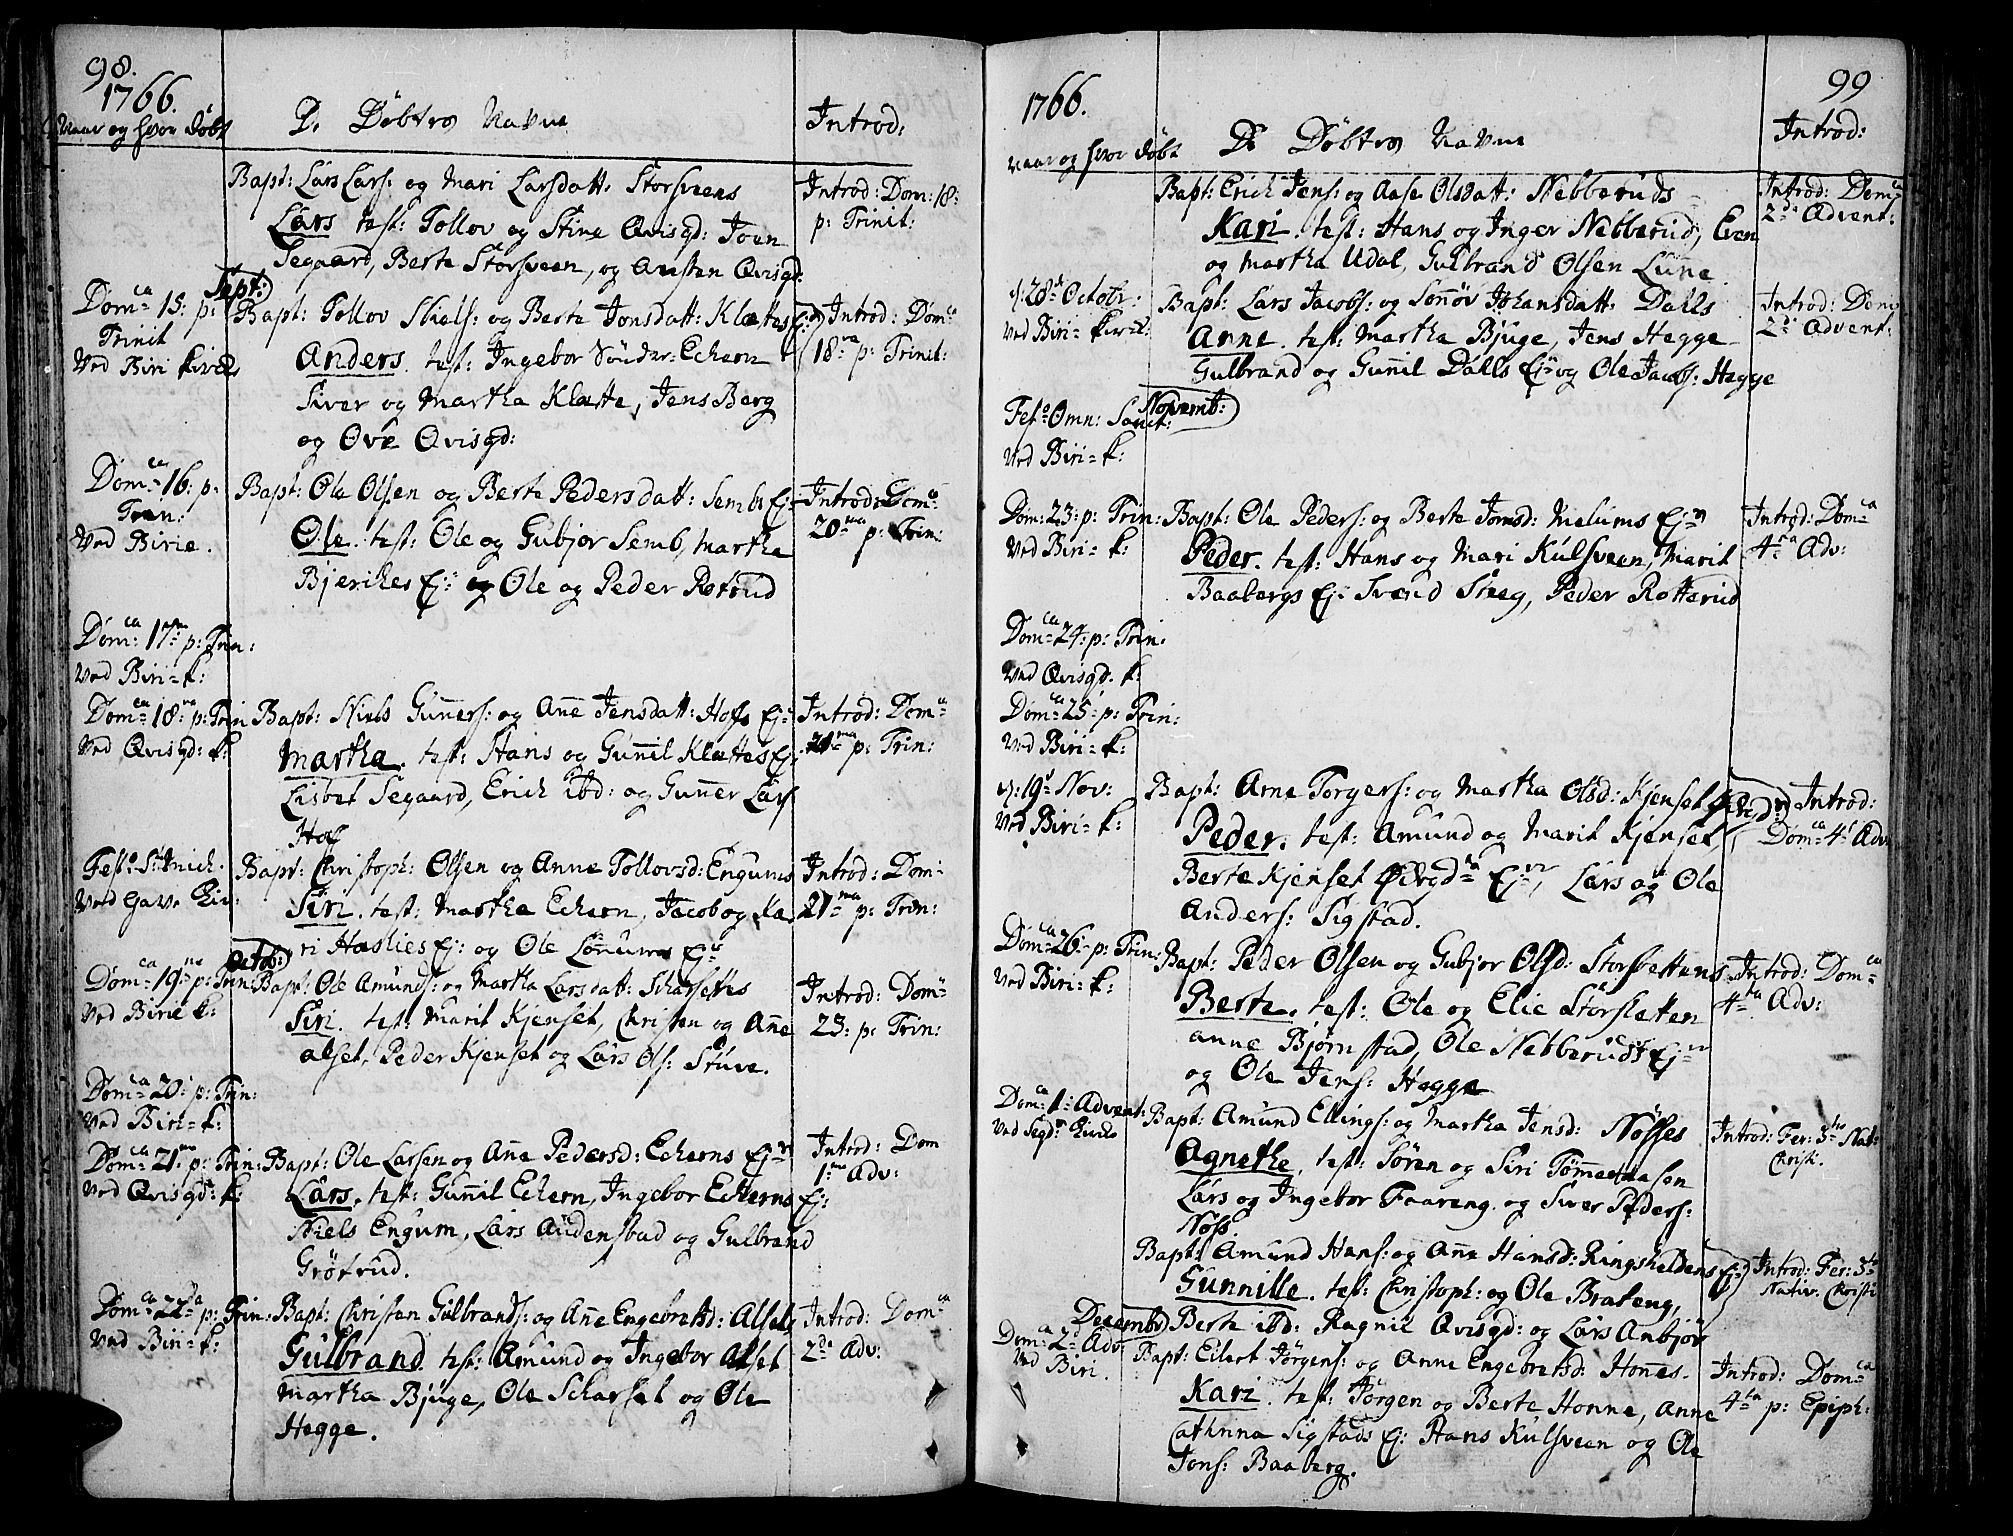 98.
1766.
Naar og hvor døbt
D. Døbtes Navne
Introd:
Bapt: Lars Lars: og Mari Larsdatt: Storsveens
Lars test: Tollov og Stine Qvisgd: Joen
Segaard, Berte Storsveen, og Aresten Qvisgd:
Introd: Dom: 18:
p: Trinit:
Sept:
Domca 15: p:
Trinit
Ved Biri Kirke
Bapt: Tollov Niels: og Berte Jonsdatt: Klættes Ej:
Anders. test: Ingebor Sønder: Echern
Siver og Martha Klætte, Jens Berg
og Ove Qvisgd:
Introd: Domca
18va p: Trinit:
Domca 16: p:
Tren:
Ved Birie.
Bapt: Ole Olsen og Berte Pedersdatt: Sembs Ej:
Ole. test: Ole og Gubjor Semb, Martha
Bjerikes Ej: og Ole og Peder Rotrud
Introd: Domca
20ma p: Trin:
Domca 17ma p: Trin:
Ved Biri-k:
Domca 18va p: Trin
Ved Qvisgd: k:
Bapt: Niels Guners: og Ane Jensdatt: Hofs Ej:
Martha. test: Hans og Gunnil Klættes Ej:
Lisbet Segaard, Erich ibd: og Gunner Lars
Hof
Introd: Domca
21ma p: Trin:
Festo St: Mich.
Ved Gave Kir:
Bapt: Christoph: Olsen og Anne Tollovsd: Engums
Siri. test: Martha Echern, Jacob og Ka-
ri Haslies Ej: og Ole Lønums Ej:
Introd: Dom:
21ma p: Trin:
Octob:
Domca 19na p: Trin:
Ved Birie k:
Bapt: Ole Amunds: og Martha Larsdatt: Scharsettes
Siri. test: Marit Kjenset, Christen og Ane
Alset, Peder Kjenset og Lars Ols: Stuve.
Introd: Dom:
23: p: Trin:
Domca 20: p: Trin:
Ved Biri-k:
Domca 21ma p: Trin:
Ved Qvisgd: k:
Bapt: Ole Larsen og Ane Pedersd: Echerns Ej:
Lars. test: Gunnil Echern, Ingebor Echerns Ej:
Niels Engum, Lars Audenstad og Gulbrand
Grøtrud.
Introd: Dom
1ma Adv:
Domca 22da p: Trin:
Ved Biri-k:
Bapt: Christen Gulbrands: og Ane Engebretsd: Alset
Gulbrand test: Amund og Ingebor Alset
Martha Bjuge, Ole Scharset og Ole
Hegge.
Introd: Domca
2da Adv:
1766.
99
Naar og hvor døbt
D. Døbtes Navne
Introd:
Bapt: Erich Jens: og Aase Olsdatt: Nebberuds
Kari. test: Hans og Inger Nebberud, Even
og Martha Udal, Gulbrand Olsen Lune
Introd: Domca
2da Advent:
d: 28de Octobr:
Ved Biri-kirke:
Bapt: Lars Jacobs: og Sønnøv Johansdatt: Dahls
Anne. test: Martha Bjuge, Jens Hegge
Gulbrand og Gunnil Dahls Ej: og Ole Jacobs: Hegge
Introd: Dom
2da Advent:
Novemb:
Festo Omn: Sanct:
Ved Biri-k:
Dom: 23: p: Trin:
Ved Biri-k:
Bapt: Ole Peders: og Berte Jonsd: Melums Ej:
Peder. test: Hans og Mari Kulsveen, Marit
Baabergs Ej: Svend Steeg, Peder Rotterud
Introd: Domca
4ta Adv:
Domca 24: p: Trin:
Ved Qvisgd. k:
Domca 25: p: Trin:
Ved Biri-k:
d: 19de Nov:
Ved Biri-k:
Bapt: Arne Torgers: og Martha Olsd: Kjenset Ødegd:
Peder. test: Amund og Marit Kjenset,
Berte Kjenset Ødegds Ej:, Lars og Ole
Anders: Sigstad.
Introd:
Domca 4de Adv
Domca 26: p: Trin:
Ved Biri-k:
Bapt: Peder Olsen og Gubjor Olsd: Storslettens
Berte. test: Ole og Elie Storsletten
Anne Bjørnstad, Ole Nebberuds Ej:
og Ole Jens: Hegge
Introd: Domca
4ta Adv:
Domca 1: Advent:
Ved Segds Kirke
Bapt: Amund Ellings: og Martha Jensd: Nøsses
Agnethe, test: Søren og Siri
Lars og Ingebor Faareng. og Siver Peders:
Nøss
Introd: Fer: 3tia Nat:
Christi.
Bapt: Amund Hans: og Ane Hansd: Ringsheldens Ej:
Gunnille. test: Christoph: og Ole Brateng,
Berte ibd: Ragnil Qvisgd: og Lars Anbjør
Introd: Fer: 3tia
Nativ. Christi
Decembr
Domca 2da Adv
Ved Biri.
Bapt: Eilert Jørgens: og Anne Engebretsd: Hones.
Kari. test: Jørgen og Berte Honne, Anne
Cathrina Sigstads Ej: Hans Kulsveen og Ole
Jons: Baaberg.
Introd: Domca
4ta p: Epiph: